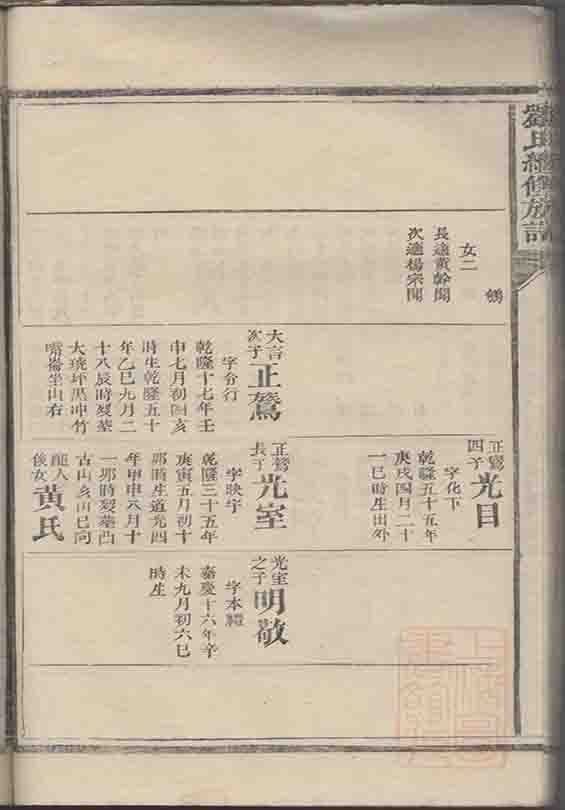 劉氏續修族譜
女二
長適黃幹聞
次適楊宗聞
大言
次子
正鶯
字分行
乾隆十七年壬
申七月初四亥
時生乾隆五十
年乙巳九月二
十八辰時歿葬
大琥坪黑冲竹
山右
正鶯
四子
光目
字化下
乾隆五十五年
庚戌四月二十
一巳時生出外
正鶯
長子
光室
字映宇
乾隆三十五年
庚寅五月初十
卯時生道光四
年甲申八月十
一卯時歿葬凸
古山亥山巳向
龍人
後女
黃氏
光室
之子
明敬
字本禮
嘉慶十六年辛
未九月初六巳
時生